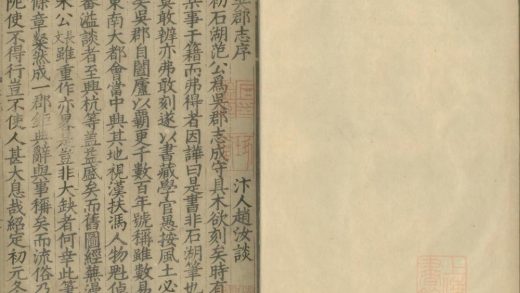 吳郡志序 汴人趙汝談
初石湖范公爲吳郡志成守具木欲刻矣時有
某事于籍而弗得者因譁曰是書非石湖筆也
莫敢辨亦弗敢刻遂以書藏學官愚按風土必
矣吳郡自闔廬以霸更千數百年號稱雖數易
東南大都會當中興其地視漢扶馮人物魁倬
番溢談者至與杭等蓋益盛矣而舊圖經蕪漫
朱公長文雖重作亦畧是豈非大缺者何幸此筆
條章粲然成一郡鉅典辭與事稱矣而流俗乃
阤使不得行豈不使人甚大息哉紹定初元冬